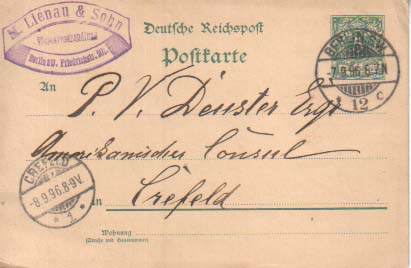 M. Lienau & Sohn
Berlin SW. Friedrichstr.
Deutsche Reichspost
Postkarte
BERLIN SW
-7.9.96.6-7N
12 c
An
P. V. Deuster Esqr
Amerikanischer Consul
in Crefeld
CREFELD
-8.9.96.8-9V
* 1 *
Wohnung
(Straße und Hausnummer)